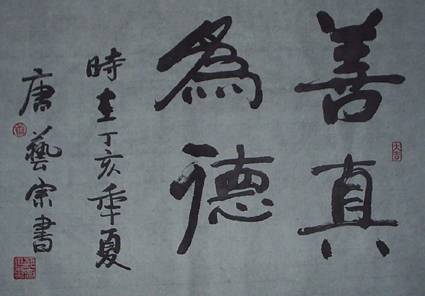 善真
為德
時在丁亥年夏
唐藝宗書